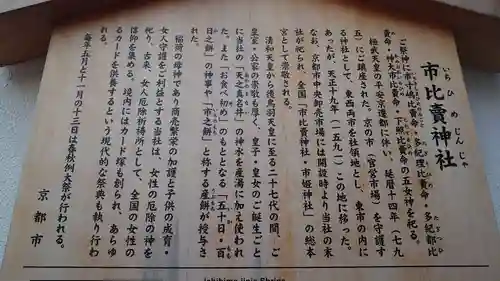 市比賣神社
いちひめじんじゃ
ご祭神に市寸比賣命・多紀理比賣命・多紀都比
賣命・神大市比賣命・下照比賣命の五女神を祀る。
桓武天皇の平安京遷都に伴い、延暦十四年（七九
五）にご鎮座された。京の市（官営市場）を守護す
る神社として、東西両市を社領地とし、東市の内に
あったが、天正十九年（一五九一）この地に移った。
なお、京都市中央卸売市場には開設時より当社の末
社が祀られ、全国「市比賣神社・市姫神社」の総本
宮として崇敬される。
清和天皇から後鳥羽天皇に至る二十七代の間、ご
皇室・公家の崇敬も厚く、皇子・皇女のご誕生ごと
に当社の「天之真名井」の神水を産湯に加え使われ
た。また「お食べ初め」のもととなる「五十日・百
日之餅」の神事や「市之餅」と称する産餅が授与さ
れた。
稲荷の母神であり商売繁栄の加護と子供の成育・
女人守護をご利益とする当社は、女性の厄除の神を
祀り、古来、女人厄除祈祷所として、全国の女性の
信仰を集める。境内にはカード塚も創られ、あらゆ
るカードを供養するという現代的な祭典も執り行わ
れる。
毎年五月と十一月の十三日は春秋例大祭が行われる。
京都市
Ichihime-jinja Shrine